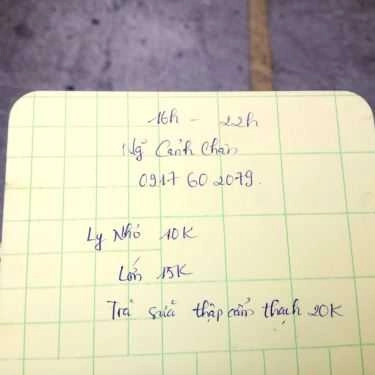 16h - 22h
Ng̃ Cảnh Chân
0917 60 2079.
Ly Nhỏ 10K
Lớn 15K
Trà sữa thập cẩm thạch 20K